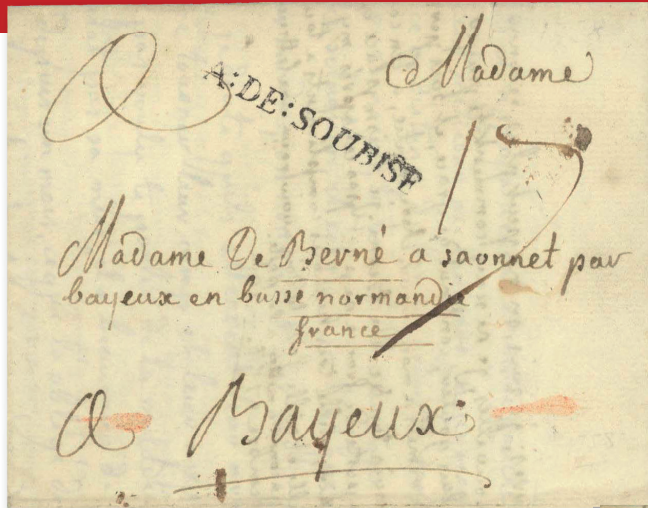 A Madame
A:DE:SOUBISE
17
Madame De Berné a saonnet par
bayeux en basse normandie
france
A Bayeux